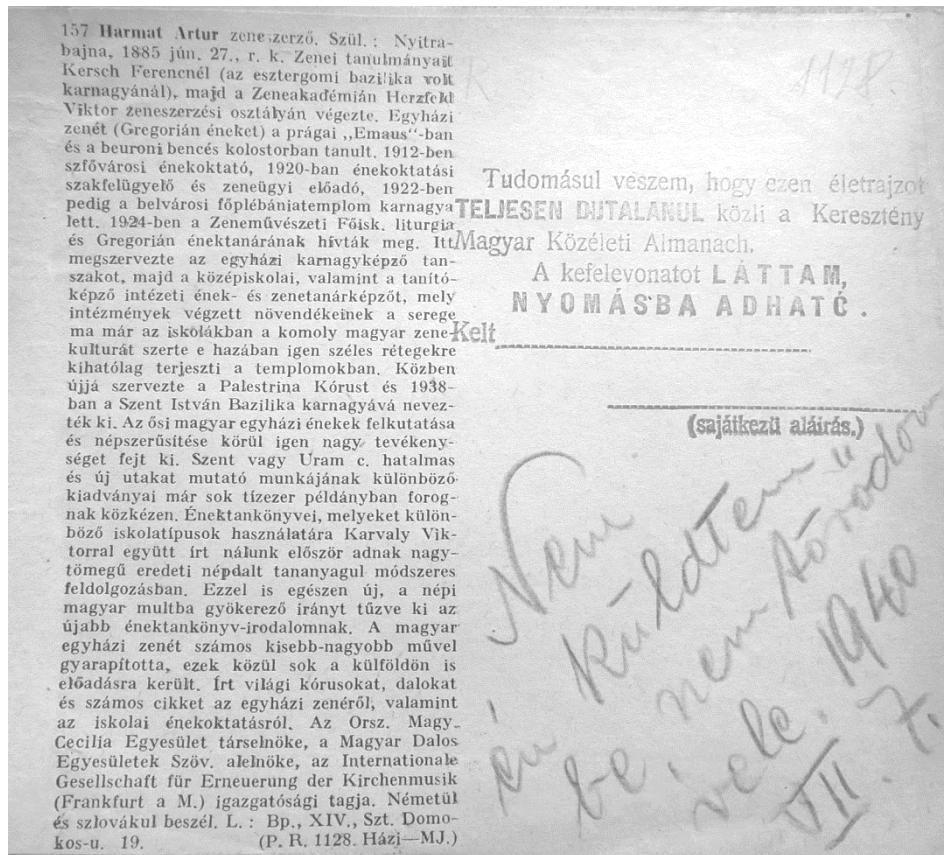 157 Harmat Artur zeneszerző. Szül.: Nyitra-
bajna, 1885 jún. 27., r. k. Zenei tanulmányait
Kersch Ferencnél (az esztergomi bazilika volt
karnagyánál), majd a Zeneakadémián Herzfeld
Viktor zeneszerzési osztályán végezte. Egyházi
zenét (Gregorián éneket) a prágai „Emaus“-ban
és a beuroni bencés kolostorban tanult. 1912-ben
szfővárosi énekoktató, 1920-ban énekoktatási
szakfelügyelő és zeneügyi előadó, 1922-ben
pedig a belvárosi főplébániatemplom karnagya
lett. 1924-ben a Zeneművészeti Főisk. liturgia
és Gregorián énektanárának hívták meg. Itt
megszervezte az egyházi karnagyképző tan-
szakot, majd a középiskolai, valamint a tanító-
képző intézeti ének- és zenetanárképzőt, mely
intézmények végzett növendékeinek a serege
ma már az iskolákban a komoly magyar zene-
kulturát szerte e hazában igen széles rétegekre
kihatólag terjeszti a templomokban. Közben
újjá szervezte a Palestrina Kórust és 1938-
ban a Szent István Bazilika karnagyává nevez-
ték ki. Az ősi magyar egyházi énekek felkutatása
és népszerűsítése körül igen nagy tevékeny-
séget fejt ki. Szent vagy Uram c. hatalmas
és új utakat mutató munkájának különböző
kiadványai már sok tízezer példányban forog-
nak közkézen. Énektankönyvei, melyeket külön-
böző iskolatípusok használatára Karvaly Vik-
torral együtt írt nálunk először adnak nagy-
tömegű eredeti népdalt tananyagul módszeres
feldolgozásban. Ezzel is egészen új, a népi
magyar multba gyökerező irányt tűzve ki az
újabb énektankönyv-irodalomnak. A magyar
egyházi zenét számos kisebb-nagyobb művel
gyarapította, ezek közül sok a külföldön is
előadásra került. Írt világi kórusokat, dalokat
és számos cikket az egyházi zenéről, valamint
az iskolai énekoktatásról. Az Orsz. Magy.
Cecilia Egyesület társelnöke, a Magyar Dalos
Egyesületek Szöv. alelnöke, az Internationale
Gesellschaft für Erneuerung der Kirchenmusik
(Frankfurt a M.) igazgatósági tagja. Németül
és szlovákul beszél. L.: Bp., XIV., Szt. Domo-
kos-u. 19. (P. R. 1128. Házi—MJ.)
R 1128.
Tudomásul veszem, hogy ezen életrajzot
TELJESEN DIJTALANUL közli a Keresztény
Magyar Közéleti Almanach.
A kefelevonatot LÁTTAM,
NYOMÁSBA ADHATÓ.
Kelt
(sajátkezü aláirás.)
Nem
én küldtem
be, nem törődöm
vele. 1940
VII. 7.